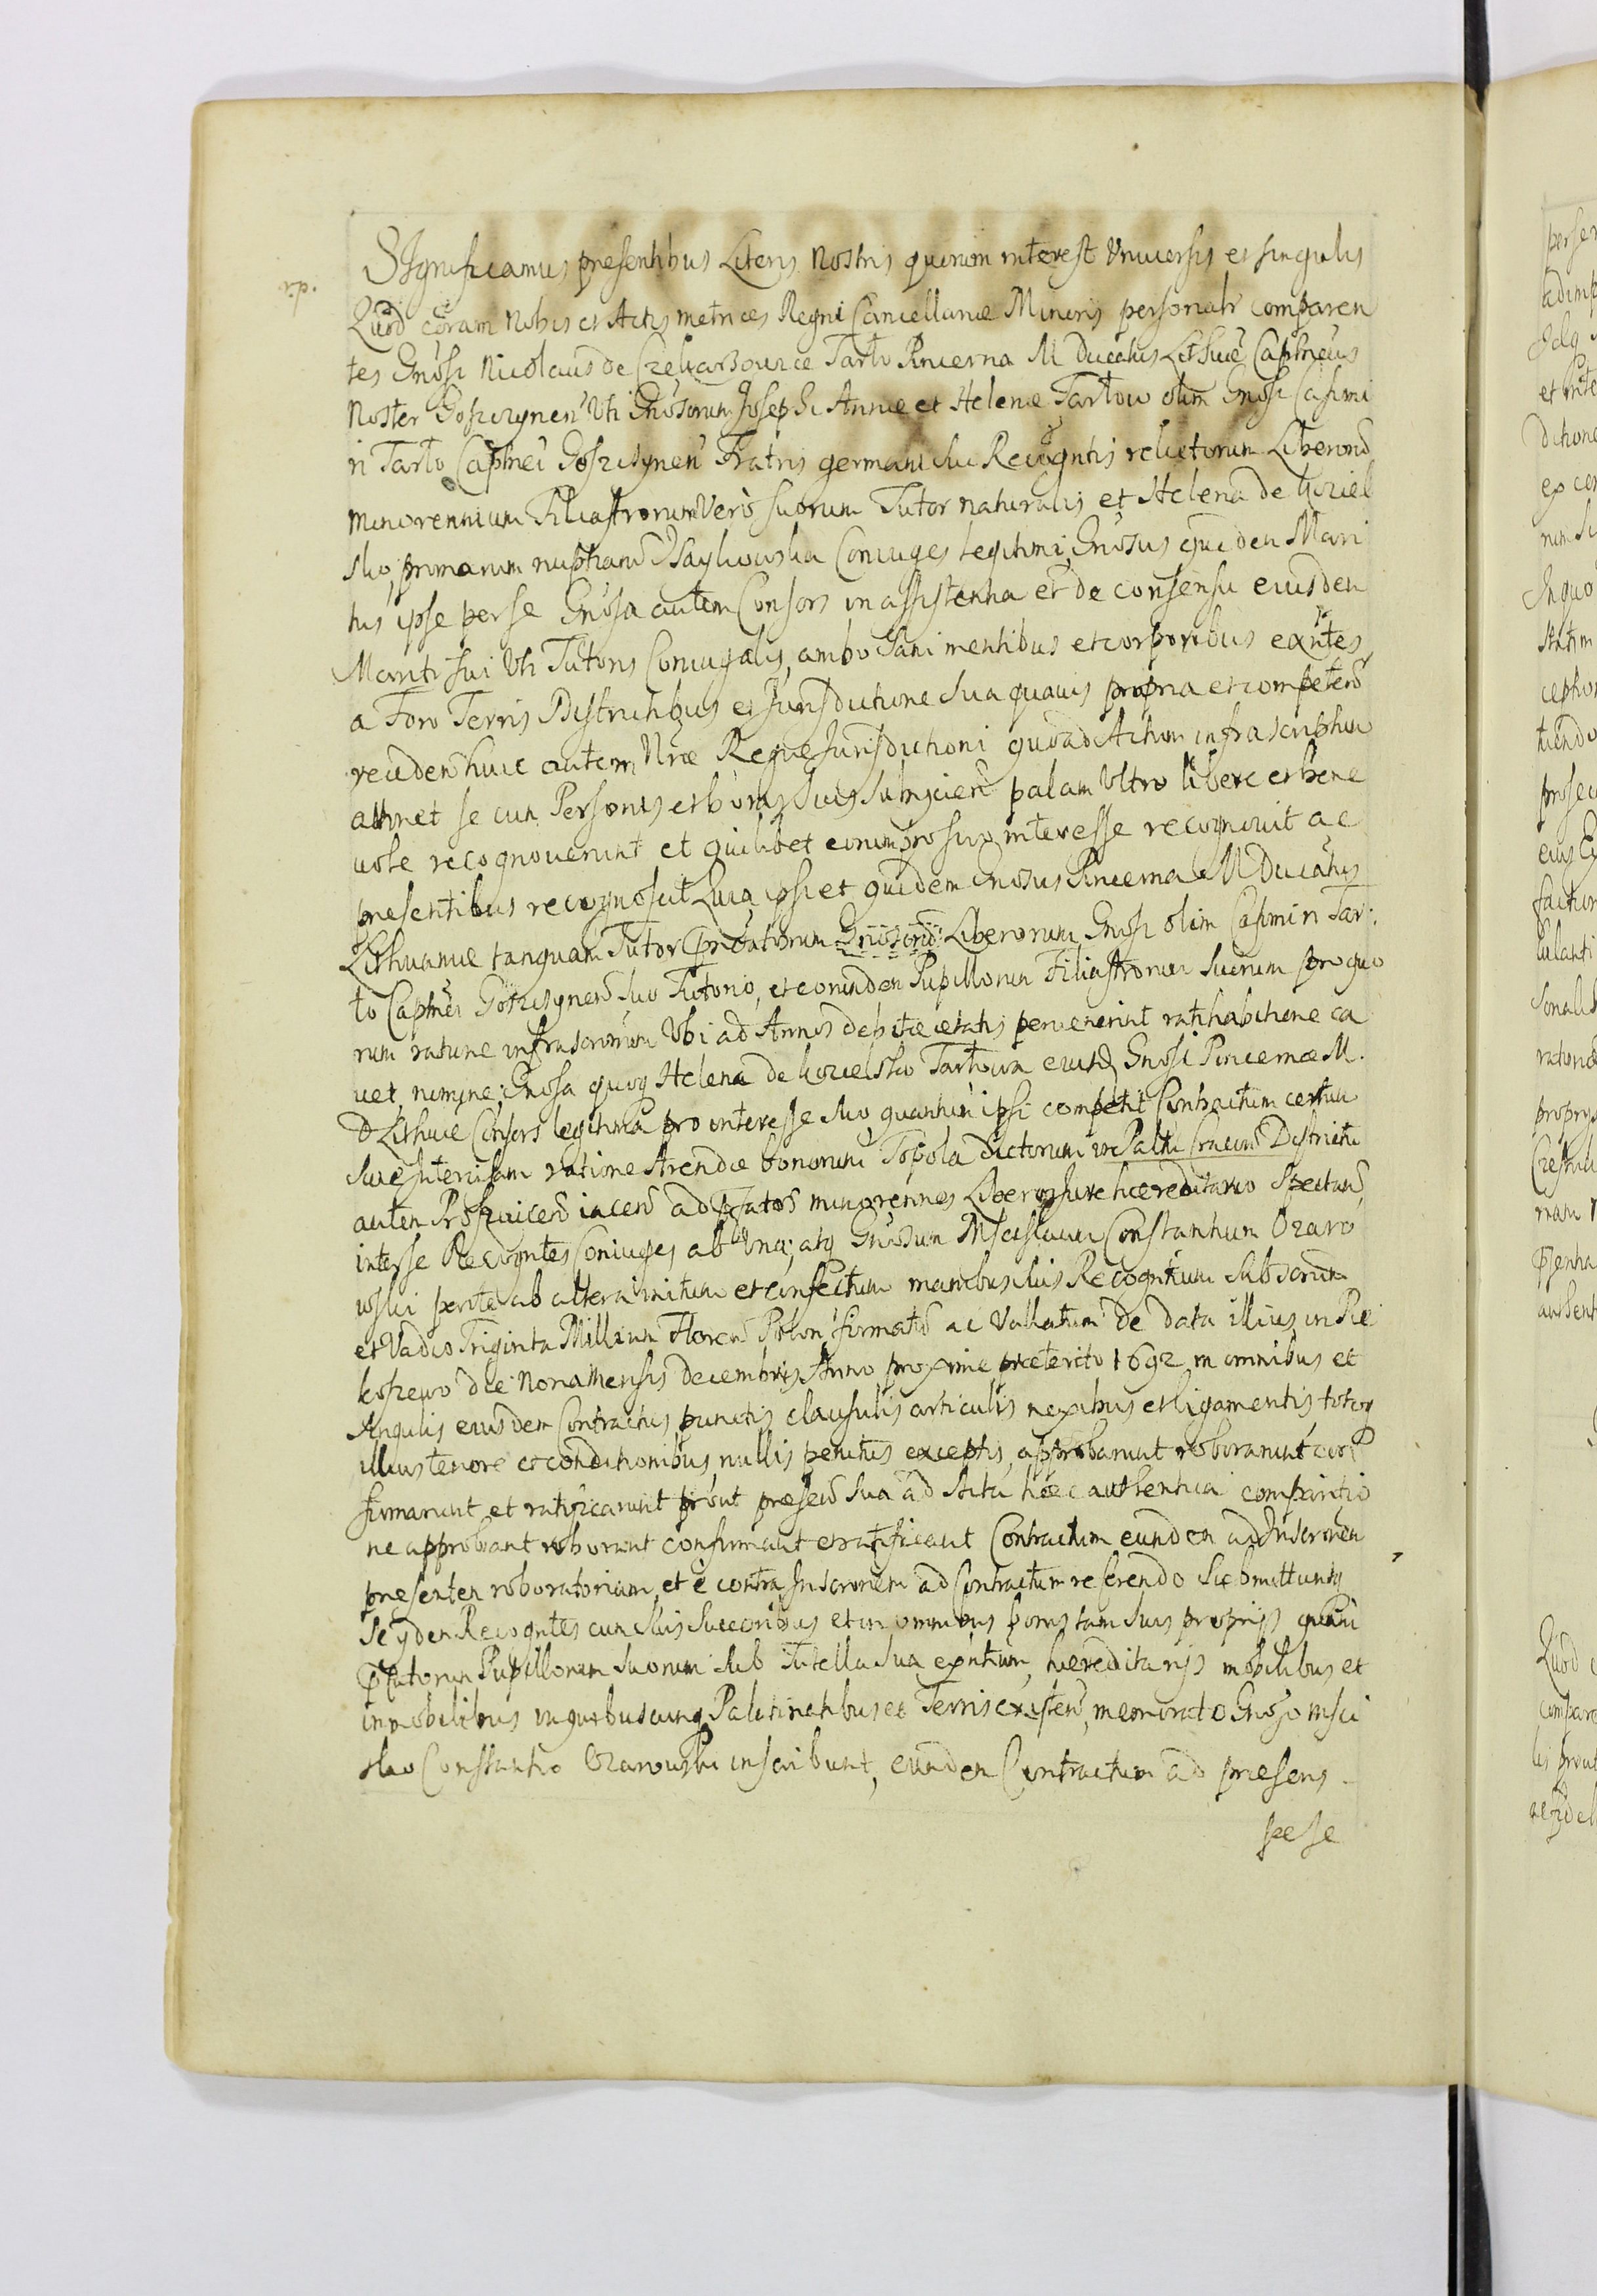 SIgnificamus presentibus Literis Nostris quorum interest Vniuersis et singulis
Quod coram Nobis et Actis metrices Regni Cancellariæ Minoris personalr comparen
tes Gnosi Nicolaus de Czekarzouice Tarło Pincerna M Ducatus Lithuæ Capneus
Noster Goszczynen Vti Gnosorum Josephi Annæ et Helenæ Tarłow olim Gnosi Casimi
ri Tarło Capnei Goszczynen Fratris germani sui Recogntis relictorum Liberorū
minorennium Filiastrorum Verò suorum Tutor naturalis et Helena de
sko primarum nuptiarū Coniuges legitimi, Gnosus quiden Mari
tus ipse per se Gnosa autem Consors in assistentia et de consensu eiusden
Mariti sui Vti Tutoris Coniugalis, ambo sani mentibus et corporibus exntes,
a Foro Terris Districtibus et Jurisdictione sua quauis propria et competen
receden huic autem Nræ Regiæ Jurisdictioni quoad Actum infrascriptum
attinet se cum Personis et bonis suis subijcien palam Vltro libere et bene
uole recognouerunt et quilibet eorum pro suo interesse recognouit ac
presentibus recognoscit Quia ipsi et quidem Gnosus Pincerna M Ducatus
Lithuaniæ tanquam Tutor Gnosorū Liberorum Gnosi olim Casimiri Tar:
ło Capnei Goszczynen suo Tutorio, et eorunden Pupillorum Filiastrorum suorum pro quo
rum ratione infrascriorum Vbi ad Annos debitæ ætatis peruenerint ratihabitione ca
uet, nomine; Gnosa quoq Helena de Tarłowa eiusd Gnosi Pincernæ M.
D Lithuæ Consors legitima pro interesse suo quantum ipsi competit Contractum certum
siue Intercisam ratione Arendæ bonorum Topola dictorum in Paltu Cracou Districtu
autem Proszouicen iacen ad Pfatos minorennes Liberos Jure hæreditario Spectan,
inter se Recogntes Coniuges ab vna; atq Gnosum Mscislaum Constantium Ozaro
wski parte ab altera initum et confectum manibus suis Recogntium subscriptum
et Vadio Triginta Millium Floren Polon firmatū ac Vallatum de data illius in Pie
koszewo die Nona Mensis Decembris Anno proxime præterito 1692 in omnibus et
singulis eiusdem Contractus punctis clausulis articulis nexibus et ligamentis totoq
illius tenore et conditionibus nullis penitus exceptis, approbarunt roborarunt con
firmarunt et ratificarunt prout præsen sua ad Acta hæc authentica comparitio
ne approbant roborant confirmant et ratificant Contractum eunden ad Inscronen
presenten roboratoriam, et e contra Inscronem ad Contractum referendo Submittuntq
Se ijden Recogntes cum suis Succoribus et in omnibus bonis tam suis proprijs quam
Pfatorum Pupillorum suorum sub Tutella sua exntium hæreditarijs mobilibus et
immobilibus in quibuscunq Palatinatibus et Terris existen, memorato Gnoso Msci
slao Constantio Ozarowski inscribunt, eunden Contractum ad præsens
sese